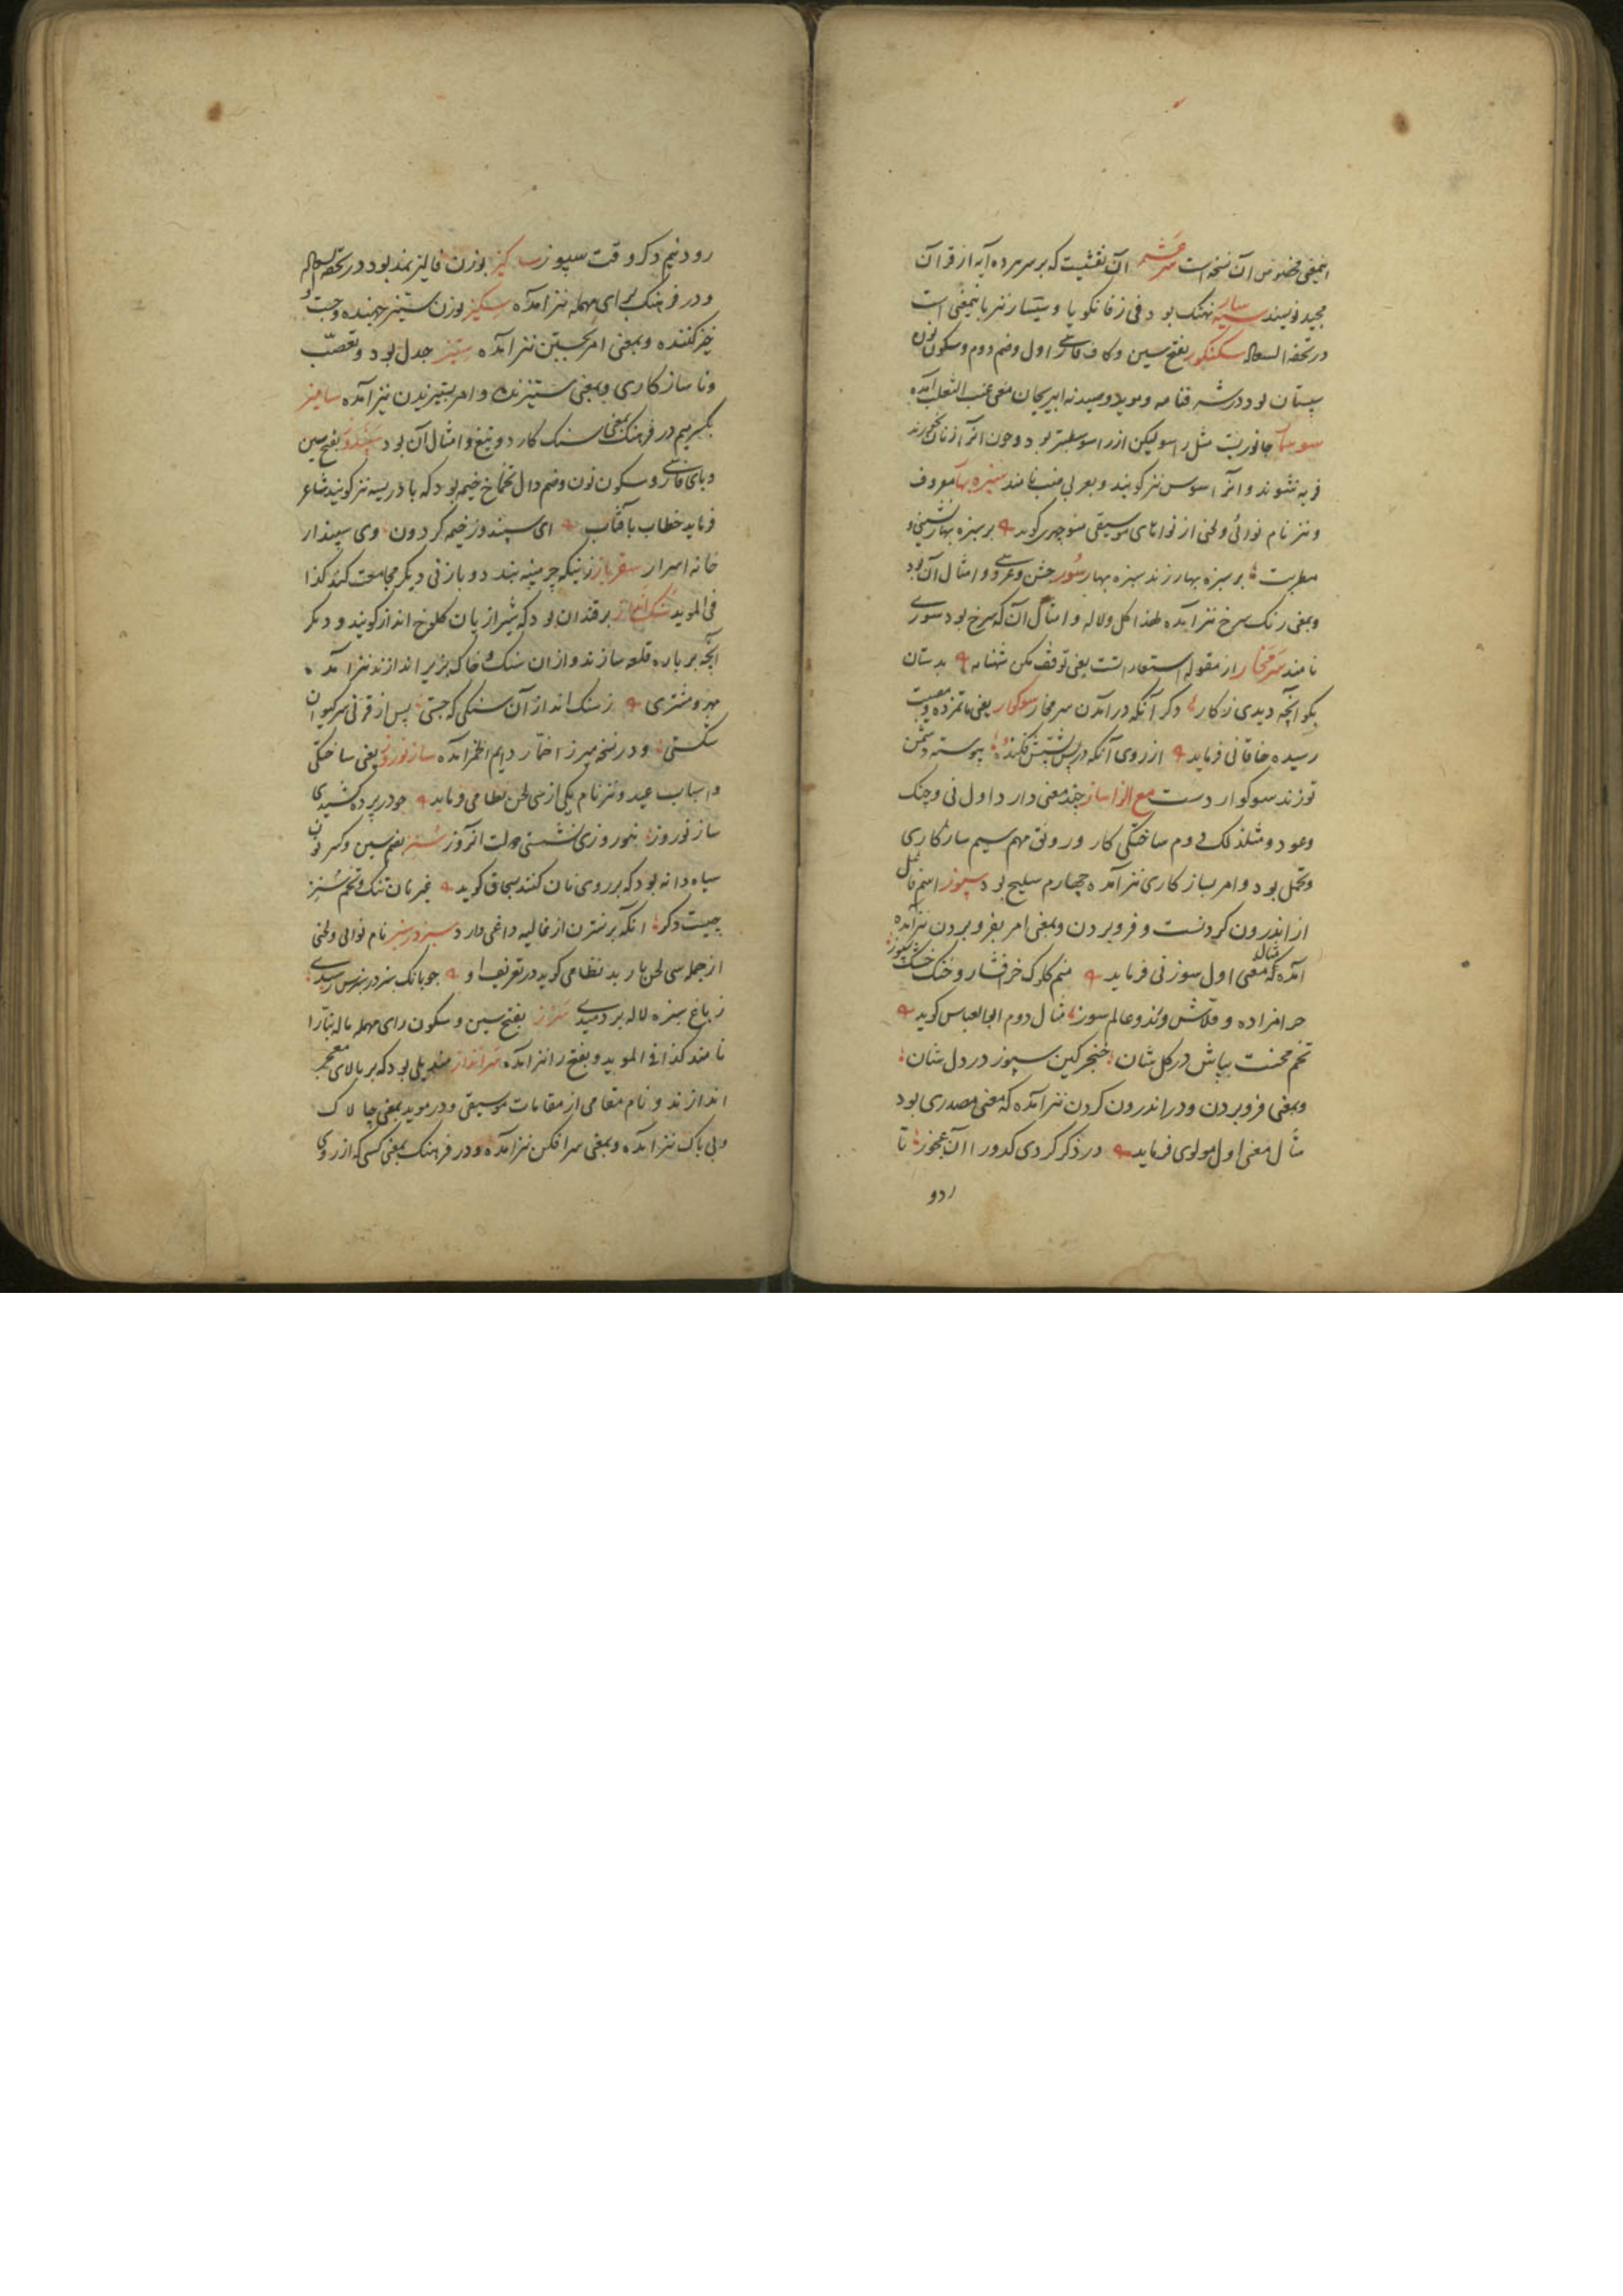 اینمعنی مخصوص آن نسخه است سرعشر آن نقشیست که بر سر هر ده آیه از قرآن
مجید نویسند سیه سار نهنک بود فی زفانکویا و سیسار نیز باینمعنی است
در تحفة السعاده سکنکور بفتح سین و کاف فارسی اول و ضم دوم و سکون نون
سپستان بود و در شرفنامه و موید معنی عنب الثعلب آمده
سوسمار جانوریست مثل راسو لیکن از راسو سطبرتر بود و چون آنرا زنان بخورند
فربه شوند و آنرا سوس نیز کویند و بعربی ضب نامند سبزه بهار معروف
و نیز نام نوائی و لحنی از نواهای موسیقی منوچهری کوید بر سبزه بهار نشینی و
مطربت بر سبزه بهار زند سبزه بهار سور جشن و عروسی و امثال آن بود
و بمعنی رنک سرخ نیز آمده لهذا کل و لاله و امثال آن که سرخ بود سوری
نامند سرمخار از مقوله استعاراتست یعنی توقف مکن شهنامه بدستان
بکو آنچه دیدی ز کار دکر آنکه در آمدن سر مخار سوکوار یعنی ماتم زده و مصیبت
رسیده خاقانی فرماید از روی آنکه در پس پشتش فکنده پیوسته دشمن
تو زند سوکوار دست مع الزا ساز چند معنی دارد اول نی و چنک
و عود و مثل ذلک دوم ساختکی کار و رونق مهم سیم سازکاری
و تحمل بود و امر بسازکاری نیز آمده چهارم سلیح بود سپوز اسم فاعل
از اندرون کردنست و فرو بردن و بمعنی امر بفرو بردن نیز آمده
آمده مثال معنی اول سوزنی فرماید منم کلوک خر افشار و خنک خشک سپوز
حرامزاده و قلاش و رند و عالم سوز مثال دوم ابو العباس کوید
تخم محنت بپاش در کل شان خنجر کین سپوز در دل شان
و بمعنی فرو بردن و در اندرون کردن نیز آمده که معنی مصدری بود
مثال معنی اول مولوی فرماید در ذکر کردی کدو را آن عجوز تا
رود
رود نیم ذکر وقت سپوز سالیز بوزن فالیز نمد بود در تحفة السعاده
و در فرهنک برای مهمله نیز آمده سکیز بوزن ستیز جهنده و جست و
خیز کننده و بمعنی امر بجستن نیز آمده ستیز جدل بود و تعصب
و ناسازکاری و بمعنی ستیزنده و امر بستیزیدن نیز آمده سامیز
بکسر میم در فرهنک بمعنی سنک کارد و تیغ و امثال آن بود سپندوز بفتح سین
و بای فارسی و سکون نون و ضم دال خیمه بود که بادریسه نیز کویند شاعر
فرماید خطاب بآفتاب ای سپندوز خیمه کردون وی سپندار
خانه اسرار سعتر باز زنیکه چرمینه بندد و با زنی دیکر مجامعت کند کذا
فی الموید سنک انداز برقندان بود که شیرازیان کلوخ انداز کویند و دیکر
آنچه بر باره قلعه سازند و از آن سنک و خاک بزیر اندازند نیز آمده
مهر و مشتری ز سنک انداز آن سنکی که جستی پس از قرنی سر کیوان
شکستی و در نسخه میرزا سازنوروز یعنی ساختکی
و اسباب عید و نیز نام یکی از سی لحن نظامی فرماید چو در پرده کشیدی
ساز نوروز بنوروزی نشستی دولت آنروز شنیز بضم سین و کسر نون
سیاه دانه بود که بر روی نان کنند بسحاق کوید غیر نان تنک و تخم شنیز
چیست دکر آنکه بر نسترن از غالیه داغی دارد سبز در سبز نام نوائی و لحنی
از جمله سی لحن باربد نظامی کوید در تعریف او چو بانک سبز در سبزش رسیدی
ز باغ سبزه لاله بر دمیدی بفتح سین و سکون رای مهمله
نامند کذا فی الموید و بفتح را نیز آمده سرانداز مندیلی بود که بر بالای معجر
اندازند و نام مقامی از مقامات موسیقی و در موید بمعنی چالاک
و بی باک نیز آمده و بمعنی سر افکن نیز آمده و در فرهنک بمعنی کسی که از روی